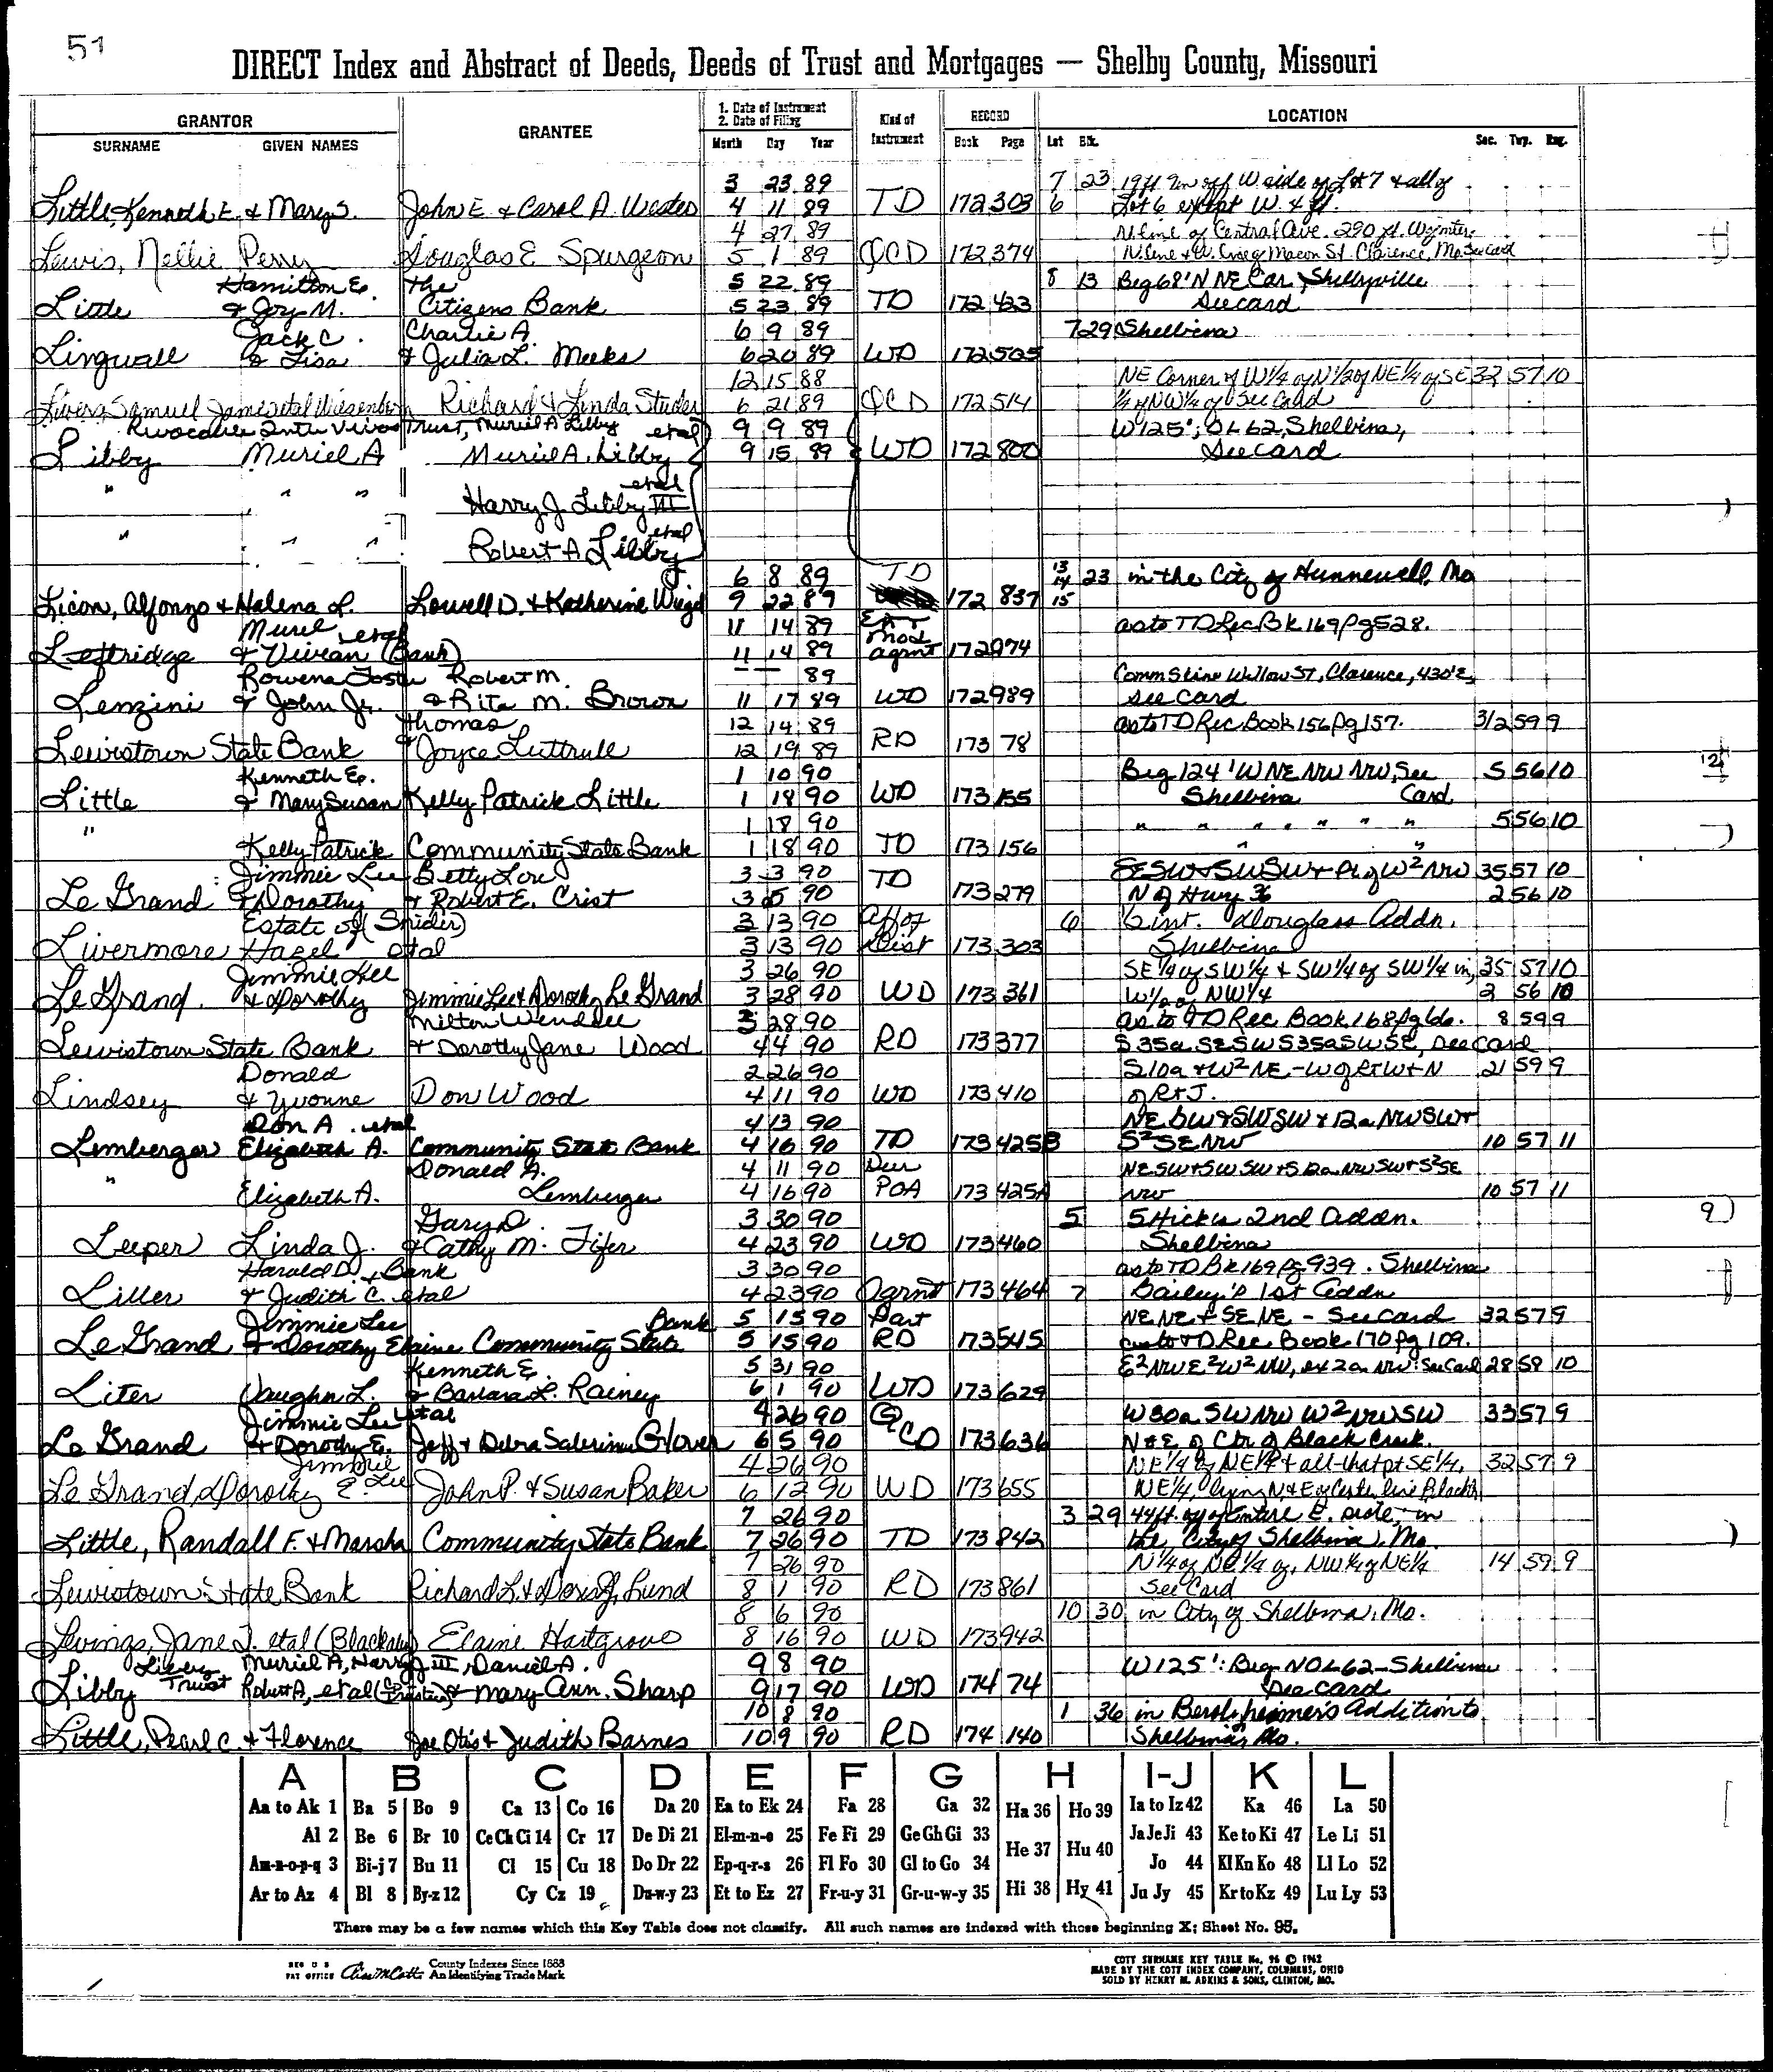 51
DIRECT Index and Abstract of Deeds, Deeds of Trust and Mortgages — Shelby County, Missouri
GRANTOR GRANTEE 1. Date of Instrument 2. Date of Filing Kind of Instrument RECORD LOCATION
SURNAME GIVEN NAMES Month Day Year Book Page Lot Blk. Sec. Twp. Rng.
3 23 89 7 23 19 ft 9 in off W side of Lot 7 & all of
Little, Kenneth E. & Mary S. John E & Carol A. Wester 4 11 89 TD 172 303 6 Lot 6 except W. 4 ft.
4 27 89 N. line of Central Ave. 290 ft.
Lewis, Nellie Perry Douglas E Spurgeon 5 1 89 QCD 172 374 N. line & W. line of Macon St. Clarence, Mo. See Card
Hamilton E. The 5 22 89 8 13 Beg 68' N NE Cor, Shelbyville
Little & Joy M. Citizens Bank 5 23 89 TD 172 423 See card
Jack C. Charlie A. 6 9 89 7 29 Shelbina
Lingwall & Lisa & Julia L. Meeks 6 20 89 WD 172 505
12 15 88 NE Corner of W 1/4 of N 1/2 of NE 1/4 of SE 32 57 10
Livers, Samuel James etal Richard & Linda Studer 6 21 89 QCD 172 514 1/4 of NW 1/4 of See Card
Revocable Inter Vivos Trust, Muriel A Libby etal 9 9 89 W 125'; OL 62, Shelbina,
Libby Muriel A Muriel A. Libby 9 15 89 WD 172 800 See card
" " " Harry J Libby III etal
" " " Robert A Libby etal
6 8 89 TD 13 14 23 in the City of Hunnewell, Mo
Licon, Alfonzo & Halena L. Lowell D. & Katherine J. 9 22 89 172 837 15
Murel etal 11 14 89 Ext as to TD Rec Bk 169 Pg 528.
Leftridge & Vivian (Bank) 11 14 89 Mod agmt 172 974
Rowena Foster Robert M. — — 89 Comm S line Willow St, Clarence, 430' E,
Lenzini & John Jr. & Rita M. Brown 11 17 89 WD 172 989 See Card
Thomas 12 14 89 as to TD Rec Book 156 Pg 157. 3/2 59 9
Lewistown State Bank & Joyce Luttrull 12 19 89 RD 173 78
Kenneth E. 1 10 90 Beg 124' W NE NW NW, See 5 56 10
Little & Mary Susan Kelly Patrick Little 1 18 90 WD 173 155 Shelbina Card
" 1 18 90 " " " " " " " 5 56 10
Kelly Patrick Community State Bank 1 18 90 TD 173 156 " "
Jimmie Lee Betty Lou 3 3 90 SE SW & SW SW & Pt of W2 NW 35 57 10
Le Grand & Dorothy & Robert E. Crist 3 5 90 TD 173 279 N of Hwy 36 2 56 10
Estate of (Snider) 3 13 90 Aff of 6 6 int. Douglass Addn.
Livermore Hazel etal 3 13 90 Dist 173 303 Shelbina
Jimmie Lee 3 26 90 SE 1/4 of SW 1/4 & SW 1/4 of SW 1/4 in, 35 57 10
Le Grand & Dorothy Jimmie Lee & Dorothy Le Grand 3 28 90 WD 173 361 W 1/2 of NW 1/4 2 56 10
Milton Wendell 3 28 90 as to TD Rec Book 168 Pg 66. 8 59 9
Lewistown State Bank & Dorothy Jane Wood 4 4 90 RD 173 377 S 35a SE SW S 35a SW SE, see card
Donald 2 26 90 S 10a & W2 NE - W of Rt W & N 21 59 9
Lindsey & Yvonne Don Wood 4 11 90 WD 173 410 of Rt J.
Don A. etal 4 13 90 NE SW & SW SW & 12a NW SW &
Lemberger Elizabeth A. Community State Bank 4 16 90 TD 173 425B S2 SE NW 10 57 11
Donald A. 4 11 90 Dur NE SW & SW SW & S 12a NW SW & S2 SE
" Elizabeth A. Lemberger 4 16 90 POA 173 425A NW 10 57 11
Gary D. 3 30 90 5 5 Hicks 2nd Addn.
Leeper Linda J. & Cathy M. Fifer 4 23 90 WD 173 460 Shelbina
Harold D. & Bank 3 30 90 as to TD Bk 169 Pg 939. Shelbina
Liller & Judith C. etal 4 23 90 Agrmt 173 464 7 Bailey's 1st Addn
Jimmie Lee Bank 5 15 90 Part NE NE & SE NE - See Card 32 57 9
Le Grand & Dorothy Elaine Community State 5 15 90 RD 173 545 as to TD Rec Book 170 Pg 109.
Kenneth E. 5 31 90 E2 NW E2 W2 NW, ex 2a NW: See Card 28 58 10
Liter Vaughn L. & Barbara L. Rainey 6 1 90 WD 173 629
Jimmie Lee etal 4 26 90 Q W 30a SW NW W2 NW SW 33 57 9
Le Grand & Dorothy E. Jeff & Debra Glover 6 5 90 CD 173 636 N & E of Ctr of Black Creek.
Jimmie 4 26 90 NE 1/4 of NE 1/4 & all that pt SE 1/4, 32 57 9
Le Grand, & Dorothy E. Lee John P. & Susan Baker 6 12 90 WD 173 655 NE 1/4, lying N & E of Center line
7 26 90 3 29 44 ft. off of Entire E. side, in
Little, Randall F. & Marsha Community State Bank 7 26 90 TD 173 842 the City of Shelbina, Mo.
7 26 90 N 1/4 of NE 1/4 of, NW 1/4 of NE 1/4 14 59 9
Lewistown State Bank Richard L. & Doris J. Lund 8 1 90 RD 173 861 See Card
8 6 90 10 30 in City of Shelbina, Mo.
Levings, Jane T. etal Elaine Hartgrove 8 16 90 WD 173 942
Libby Muriel A, Harry J III, Daniel A. 9 8 90 W 125': Beg N OL 62 - Shelbina
Libby Trust Robert A, etal Mary Ann Sharp 9 17 90 WD 174 74 See card
10 8 90 1 36 in Bersheimer's Addition to
Little, Pearl C. & Florence Joe Otis & Judith Barnes 10 9 90 RD 174 140 Shelbina, Mo.
A B C D E F G H I-J K L
Aa to Ak 1 Ba 5 Bo 9 Ca 13 Co 16 Da 20 Ea to Ek 24 Fa 28 Ga 32 Ha 36 Ho 39 Ia to Iz 42 Ka 46 La 50
Al 2 Be 6 Br 10 Ce Ch Ci 14 Cr 17 De Di 21 El-m-n-o 25 Fe Fi 29 Ge Gh Gi 33 He 37 Hu 40 Ja Je Ji 43 Ke to Ki 47 Le Li 51
Am-n-o-p-q 3 Bi-j 7 Bu 11 Cl 15 Cu 18 Do Dr 22 Ep-q-r-s 26 Fl Fo 30 Gl to Go 34 Jo 44 Kl Kn Ko 48 Ll Lo 52
Ar to Az 4 Bl 8 By-z 12 Cy Cz 19 Du-w-y 23 Et to Ez 27 Fr-u-y 31 Gr-u-w-y 35 Hi 38 Hy 41 Ju Jy 45 Kr to Kz 49 Lu Ly 53
There may be a few names which this Key Table does not classify. All such names are indexed with those beginning X; Sheet No. 95.
REG U S PAT OFFICE County Indexes Since 1888 An Identifying Trade Mark
COTT SURNAME KEY TABLE No. 96 © 1962
MADE BY THE COTT INDEX COMPANY, COLUMBUS, OHIO
SOLD BY HENRY M. ADKINS & SONS, CLINTON, MO.